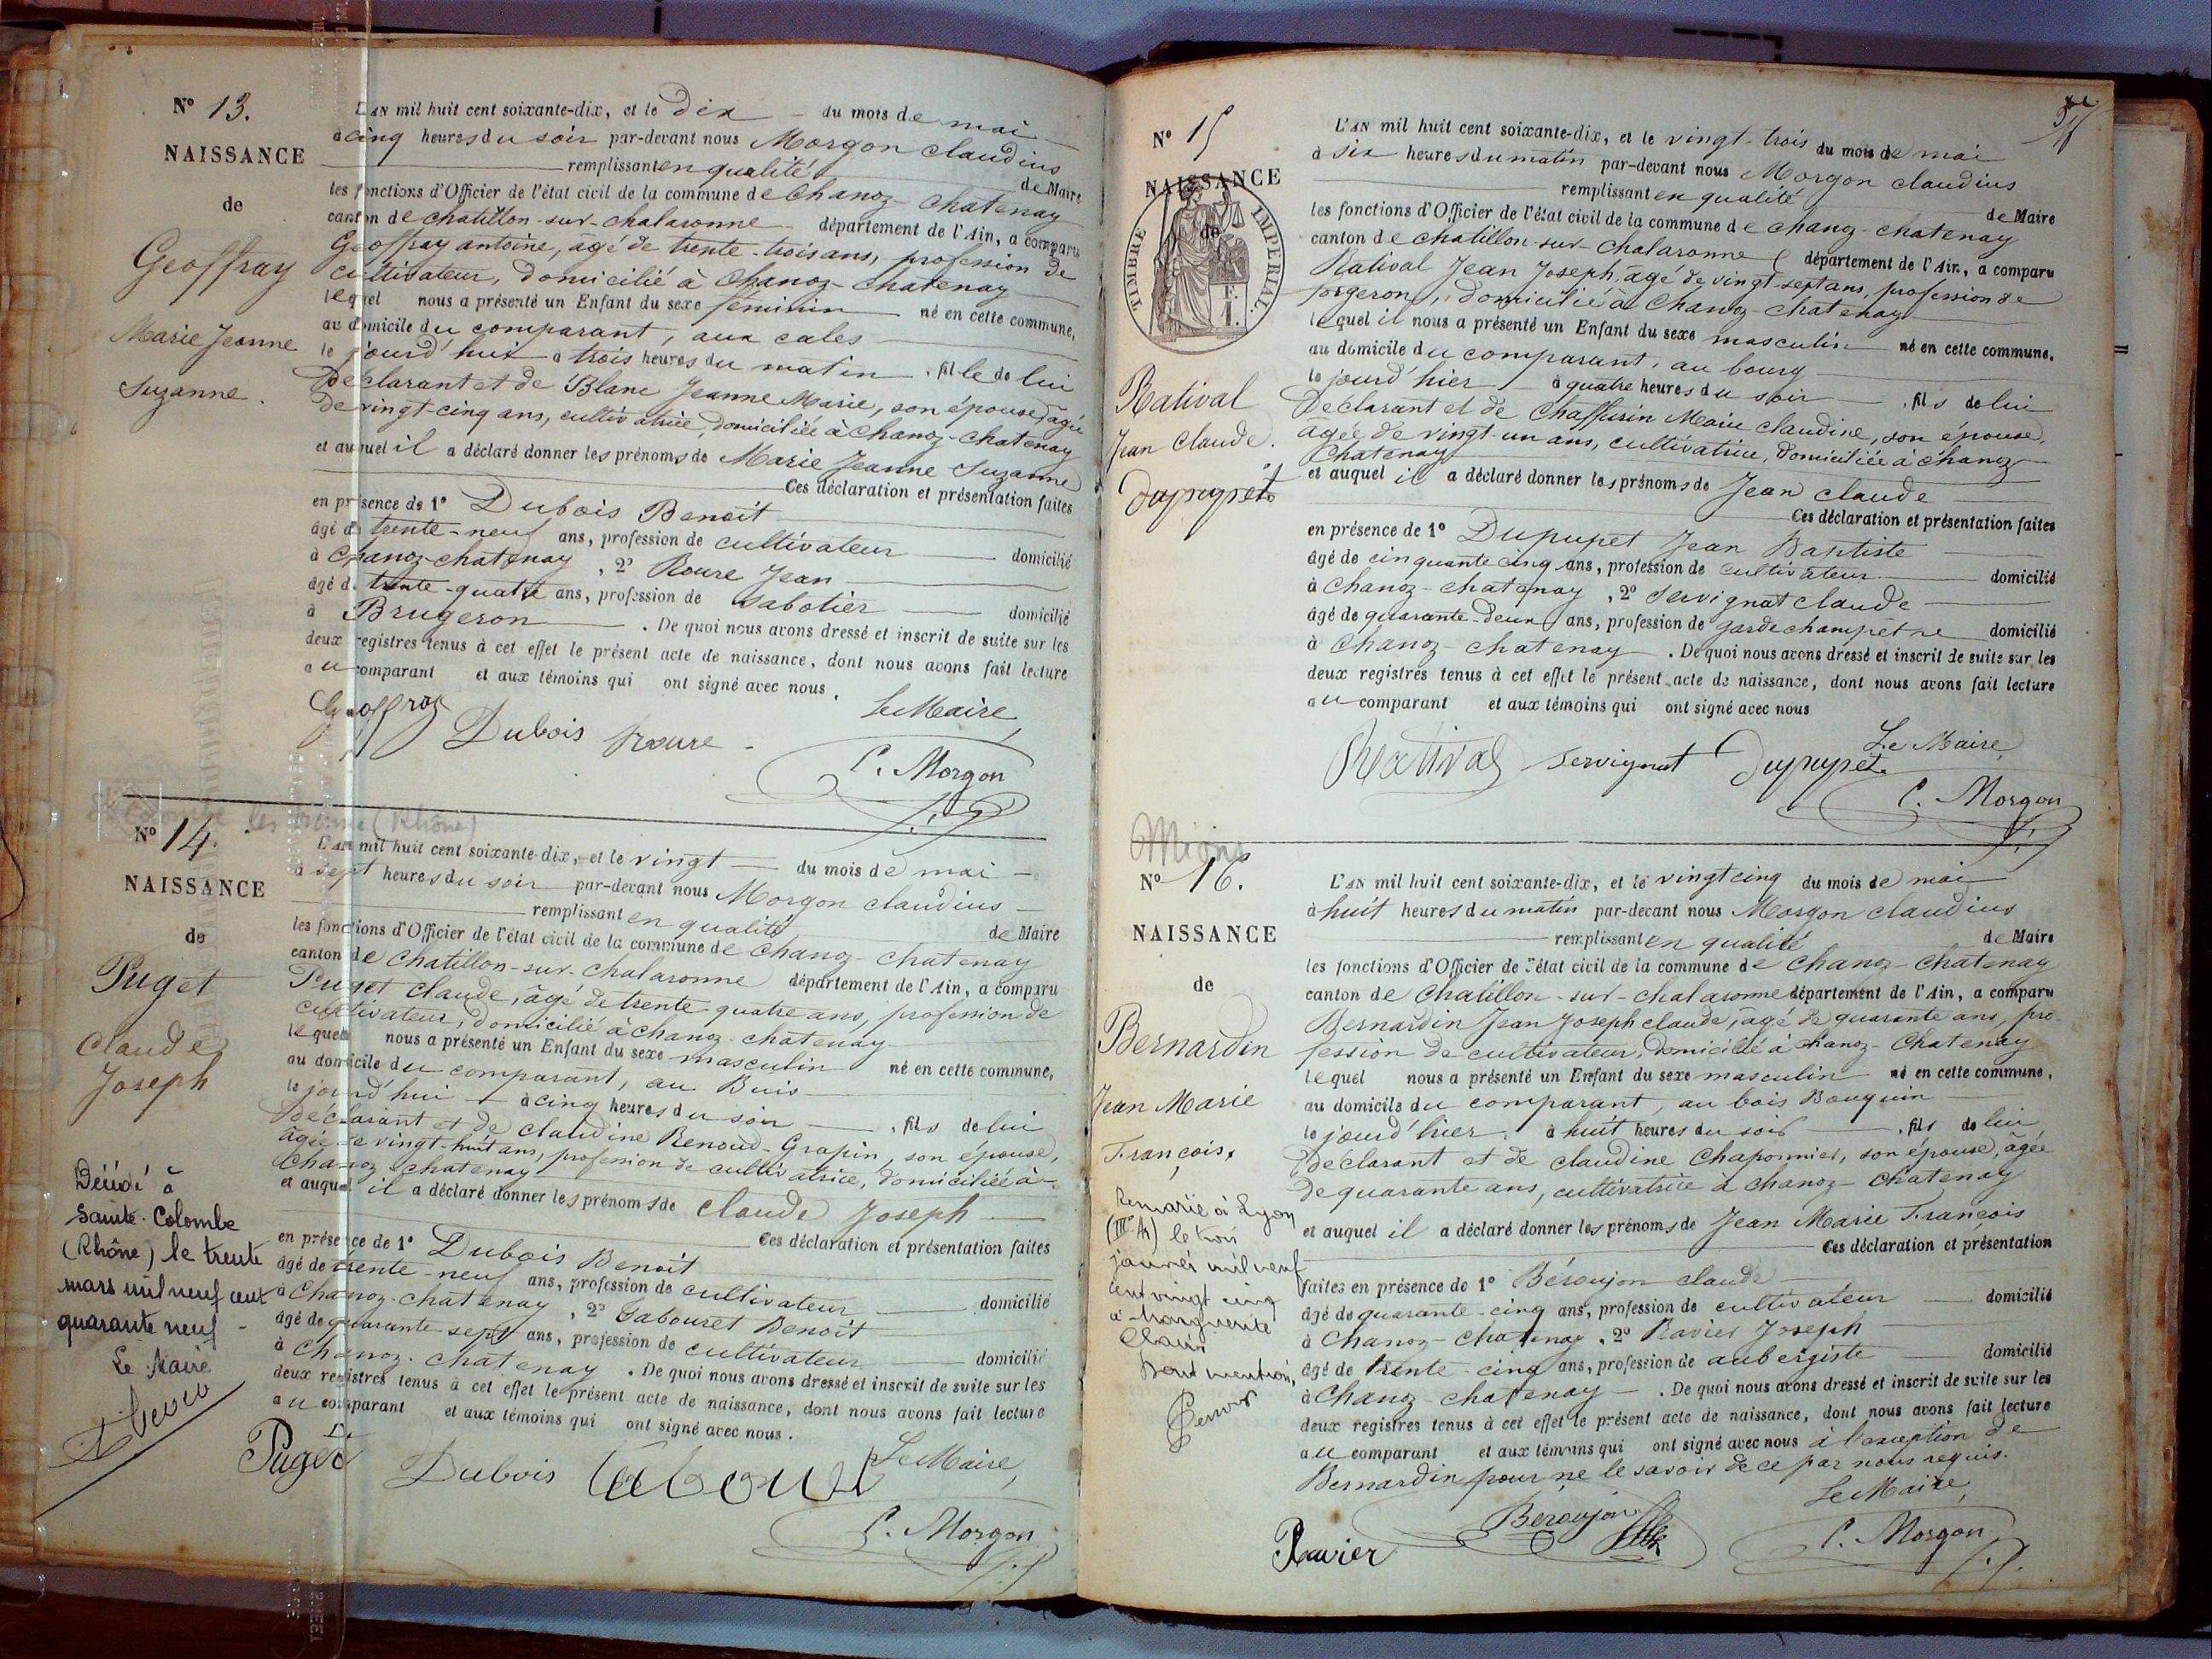 Nº 13.
NAISSANCE
de
Geoffray
Marie Jeanne
Suzanne.
L'AN mil huit cent soixante-dix, et le dix du mois de mai
à cinq heures du soir par-devant nous Morgon claudius
remplissant en qualité de Maire
les fonctions d'Officier de l'état civil de la commune de Chanoz-Chatenay
canton de chatillon-sur-chalaronne département de l'Ain, a comparu
Geoffray antoine, âgé de trente-trois ans, profession de
cultivateur, domicilié à Chanoz-Chatenay
lequel nous a présenté un Enfant du sexe feminin né en cette commune,
au domicile du comparant, aux cales
le jourd'hui à trois heures du matin, fille de lui
Déclarant et de Blanc Jeanne Marie, son épouse, âgée
de vingt-cinq ans, cultivatrice, domiciliée à Chanoz-Chatenay
et auquel il a déclaré donner les prénoms de Marie Jeanne Suzanne
Ces déclaration et présentation faites
en présence de 1º Dubois Benoit
âgé de trente-neuf ans, profession de cultivateur domicilié
à Chanoz-chatenay, 2º Roure Jean
âgé de trente-quatre ans, profession de sabotier domicilié
à Brugeron. De quoi nous avons dressé et inscrit de suite sur les
deux registres tenus à cet effet le présent acte de naissance, dont nous avons fait lecture
au comparant et aux témoins qui ont signé avec nous.
Le Maire,
Geoffray Dubois Roure
C. Morgon
Nº 14.
(Rhône)
NAISSANCE
de
Puget
Claude
Joseph
Décédé à
Sainte-Colombe
(Rhône) le trente
mars mil neuf cent
quarante neuf
Le Maire
L'AN mil huit cent soixante-dix, et le vingt du mois de mai
à sept heures du soir par-devant nous Morgon claudius
remplissant en qualité de Maire
les fonctions d'Officier de l'état civil de la commune de Chanoz-Chatenay
canton de Chatillon-sur-Chalaronne département de l'Ain, a comparu
Puget Claude, âgé de trente quatre ans, profession de
cultivateur, domicilié à Chanoz-chatenay
lequel nous a présenté un Enfant du sexe masculin né en cette commune,
au domicile du comparant, au Buis
le jourd'hui à cinq heures du soir, fils de lui
déclarant et de claudine Renoud-Grapin, son épouse,
âgée de vingt-huit ans, profession de cultivatrice, domiciliée à
Chanoz-chatenay
et auquel il a déclaré donner les prénoms de Claude Joseph
Ces déclaration et présentation faites
en présence de 1º Dubois Benoit
âgé de trente-neuf ans, profession de cultivateur domicilié
à Chanoz-chatenay, 2º Gabouret Benoit
âgé de quarante sept ans, profession de cultivateur domicilié
à Chanoz-chatenay. De quoi nous avons dressé et inscrit de suite sur les
deux registres tenus à cet effet le présent acte de naissance, dont nous avons fait lecture
au comparant et aux témoins qui ont signé avec nous.
Le Maire,
Puget Dubois
C. Morgon
Nº 15
NAISSANCE
de
TIMBRE IMPERIAL
Rativat
Jean Claude.
Dupupet
L'AN mil huit cent soixante-dix, et le vingt-trois du mois de mai
à six heures du matin par-devant nous Morgon claudius
remplissant en qualité de Maire
les fonctions d'Officier de l'état civil de la commune de Chanoz-Chatenay
canton de chatillon-sur-chalaronne département de l'Ain, a comparu
Rativat Jean Joseph, âgé de vingt-sept ans, profession de
forgeron, domicilié à Chanoz-Chatenay
lequel il nous a présenté un Enfant du sexe masculin né en cette commune,
au domicile du comparant, au bourg
le jourd'hier à quatre heures du soir, fils de lui
Déclarant et de Chaffurin Marie Claudine, son épouse,
âgée de vingt-un ans, cultivatrice, domiciliée à Chanoz
Chatenay
et auquel il a déclaré donner les prénoms de Jean claude
Ces déclaration et présentation faites
en présence de 1º Dupupet Jean Baptiste
âgé de cinquante cinq ans, profession de cultivateur domicilié
à Chanoz-chatenay, 2º Servignat claude
âgé de quarante-deux ans, profession de garde champêtre domicilié
à Chanoz-chatenay. De quoi nous avons dressé et inscrit de suite sur les
deux registres tenus à cet effet le présent acte de naissance, dont nous avons fait lecture
au comparant et aux témoins qui ont signé avec nous
Le Maire,
Rativat Servignat Dupupet
C. Morgon
Mions
Nº 16.
NAISSANCE
de
Bernardin
Jean Marie
François.
Remarié à Lyon
(IIIe Ar) le trois
janvier mil neuf
cent vingt cinq
à Marguerite
Clair
Dont mention,
L'AN mil huit cent soixante-dix, et le vingt cinq du mois de mai
à huit heures du matin par-devant nous Morgon claudius
remplissant en qualité de Maire
les fonctions d'Officier de l'état civil de la commune de Chanoz-Chatenay
canton de Chatillon-sur-chalaronne département de l'Ain, a comparu
Bernardin Jean Joseph claude, âgé de quarante ans, pro-
fession de cultivateur, domicilié à chanoz-Chatenay
lequel nous a présenté un Enfant du sexe masculin né en cette commune,
au domicile du comparant, au bois Bouquin
le jourd'hier, à huit heures du soir, fils de lui
Déclarant et de claudine Chaponnier, son épouse, âgée
de quarante ans, cultivatrice à Chanoz-Chatenay
et auquel il a déclaré donner les prénoms de Jean Marie François
Ces déclaration et présentation
faites en présence de 1º Béroujon claude
âgé de quarante-cinq ans, profession de cultivateur domicilié
à Chanoz-Chatenay, 2º Ravier Joseph
âgé de trente-cinq ans, profession de aubergiste domicilié
à Chanoz-chatenay. De quoi nous avons dressé et inscrit de suite sur les
deux registres tenus à cet effet le présent acte de naissance, dont nous avons fait lecture
au comparant et aux témoins qui ont signé avec nous à l'exception de
Bernardin pour ne le savoir de ce par nous requis.
Le Maire,
Ravier Beroujon
C. Morgon